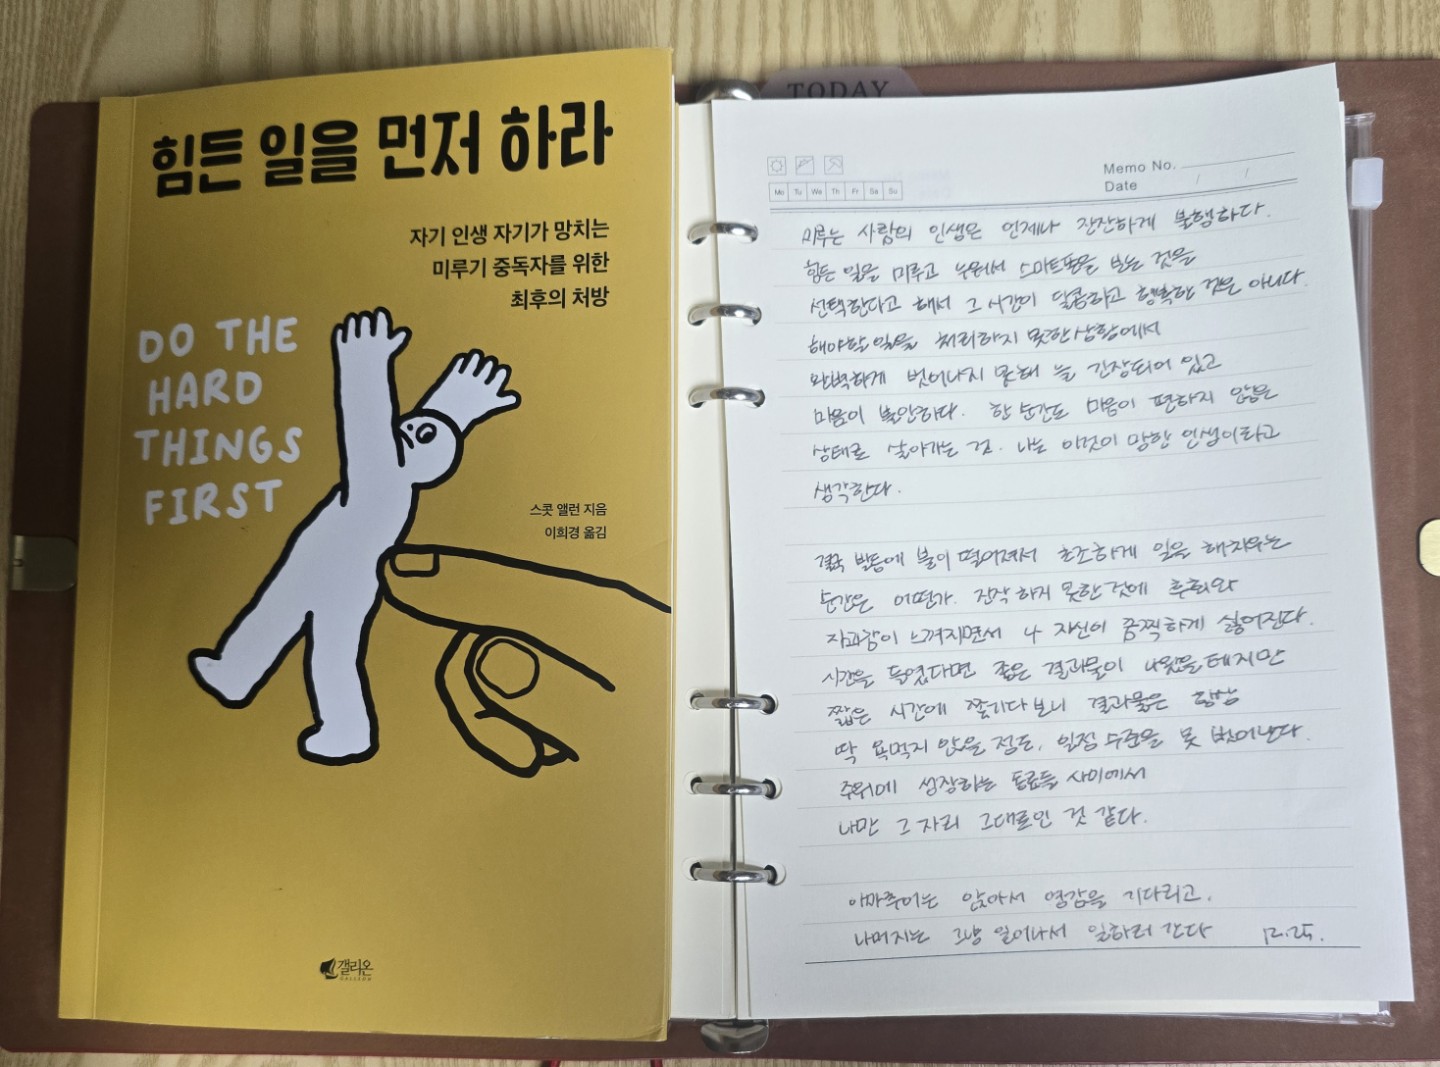 힘든 일을 먼저 하라
자기 인생 자기가 망치는
미루기 중독자를 위한
최후의 처방
DO THE
HARD
THINGS
FIRST
스콧 앨런 지음
이희경 옮김
갤리온
TODAY
Memo No.
Date / /
Mo Tu We Th Fr Sa Su
미루는 사람의 인생은 언제나 잔잔하게 불행하다.
힘든 일을 미루고 누워서 스마트폰을 보는 것을
선택한다고 해서 그 시간이 달콤하고 행복한 것은 아니다.
해야할 일을 처리하지 못한 상황에서
완벽하게 벗어나지 못해 늘 긴장되어 있고
마음이 불안하다. 한 순간도 마음이 편하지 않은
상태로 살아가는 것. 나는 이것이 망한 인생이라고
생각한다.
결국 발등에 불이 떨어져서 초조하게 일을 해치우는
순간은 어떤가. 진작 하지 못한 것에 후회와
자괴감이 느껴지면서 나 자신이 끔찍하게 싫어진다.
시간을 들였다면 좋은 결과물이 나왔을 테지만
짧은 시간에 쫓기다 보니 결과물은 항상
딱 욕먹지 않을 정도, 일정 수준을 못 벗어난다.
주위에 성장하는 동료들 사이에서
나만 그 자리 그대로인 것 같다.
아마추어는 앉아서 영감을 기다리고,
나머지는 그냥 일어나서 일하러 간다 12.25.